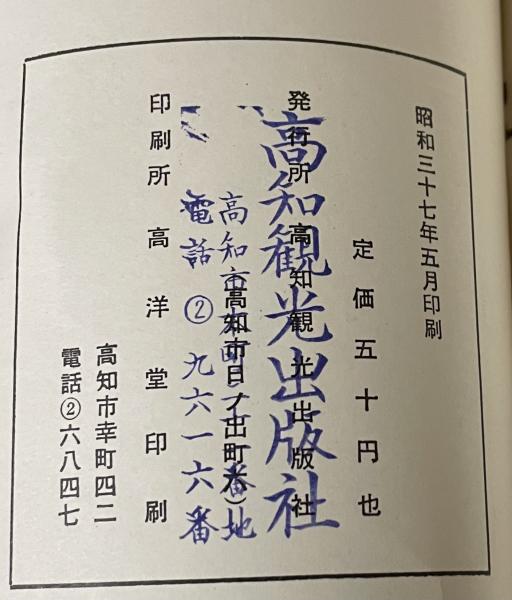 昭和三十七年五月印刷
定価五十円也
発行所 高知観光出版社
高知観光出版社
(高知市日ノ出町六)
高知市 番地
電話② 九六一六番
印刷所 高洋堂印刷
高知市幸町四二
電話②六八四七